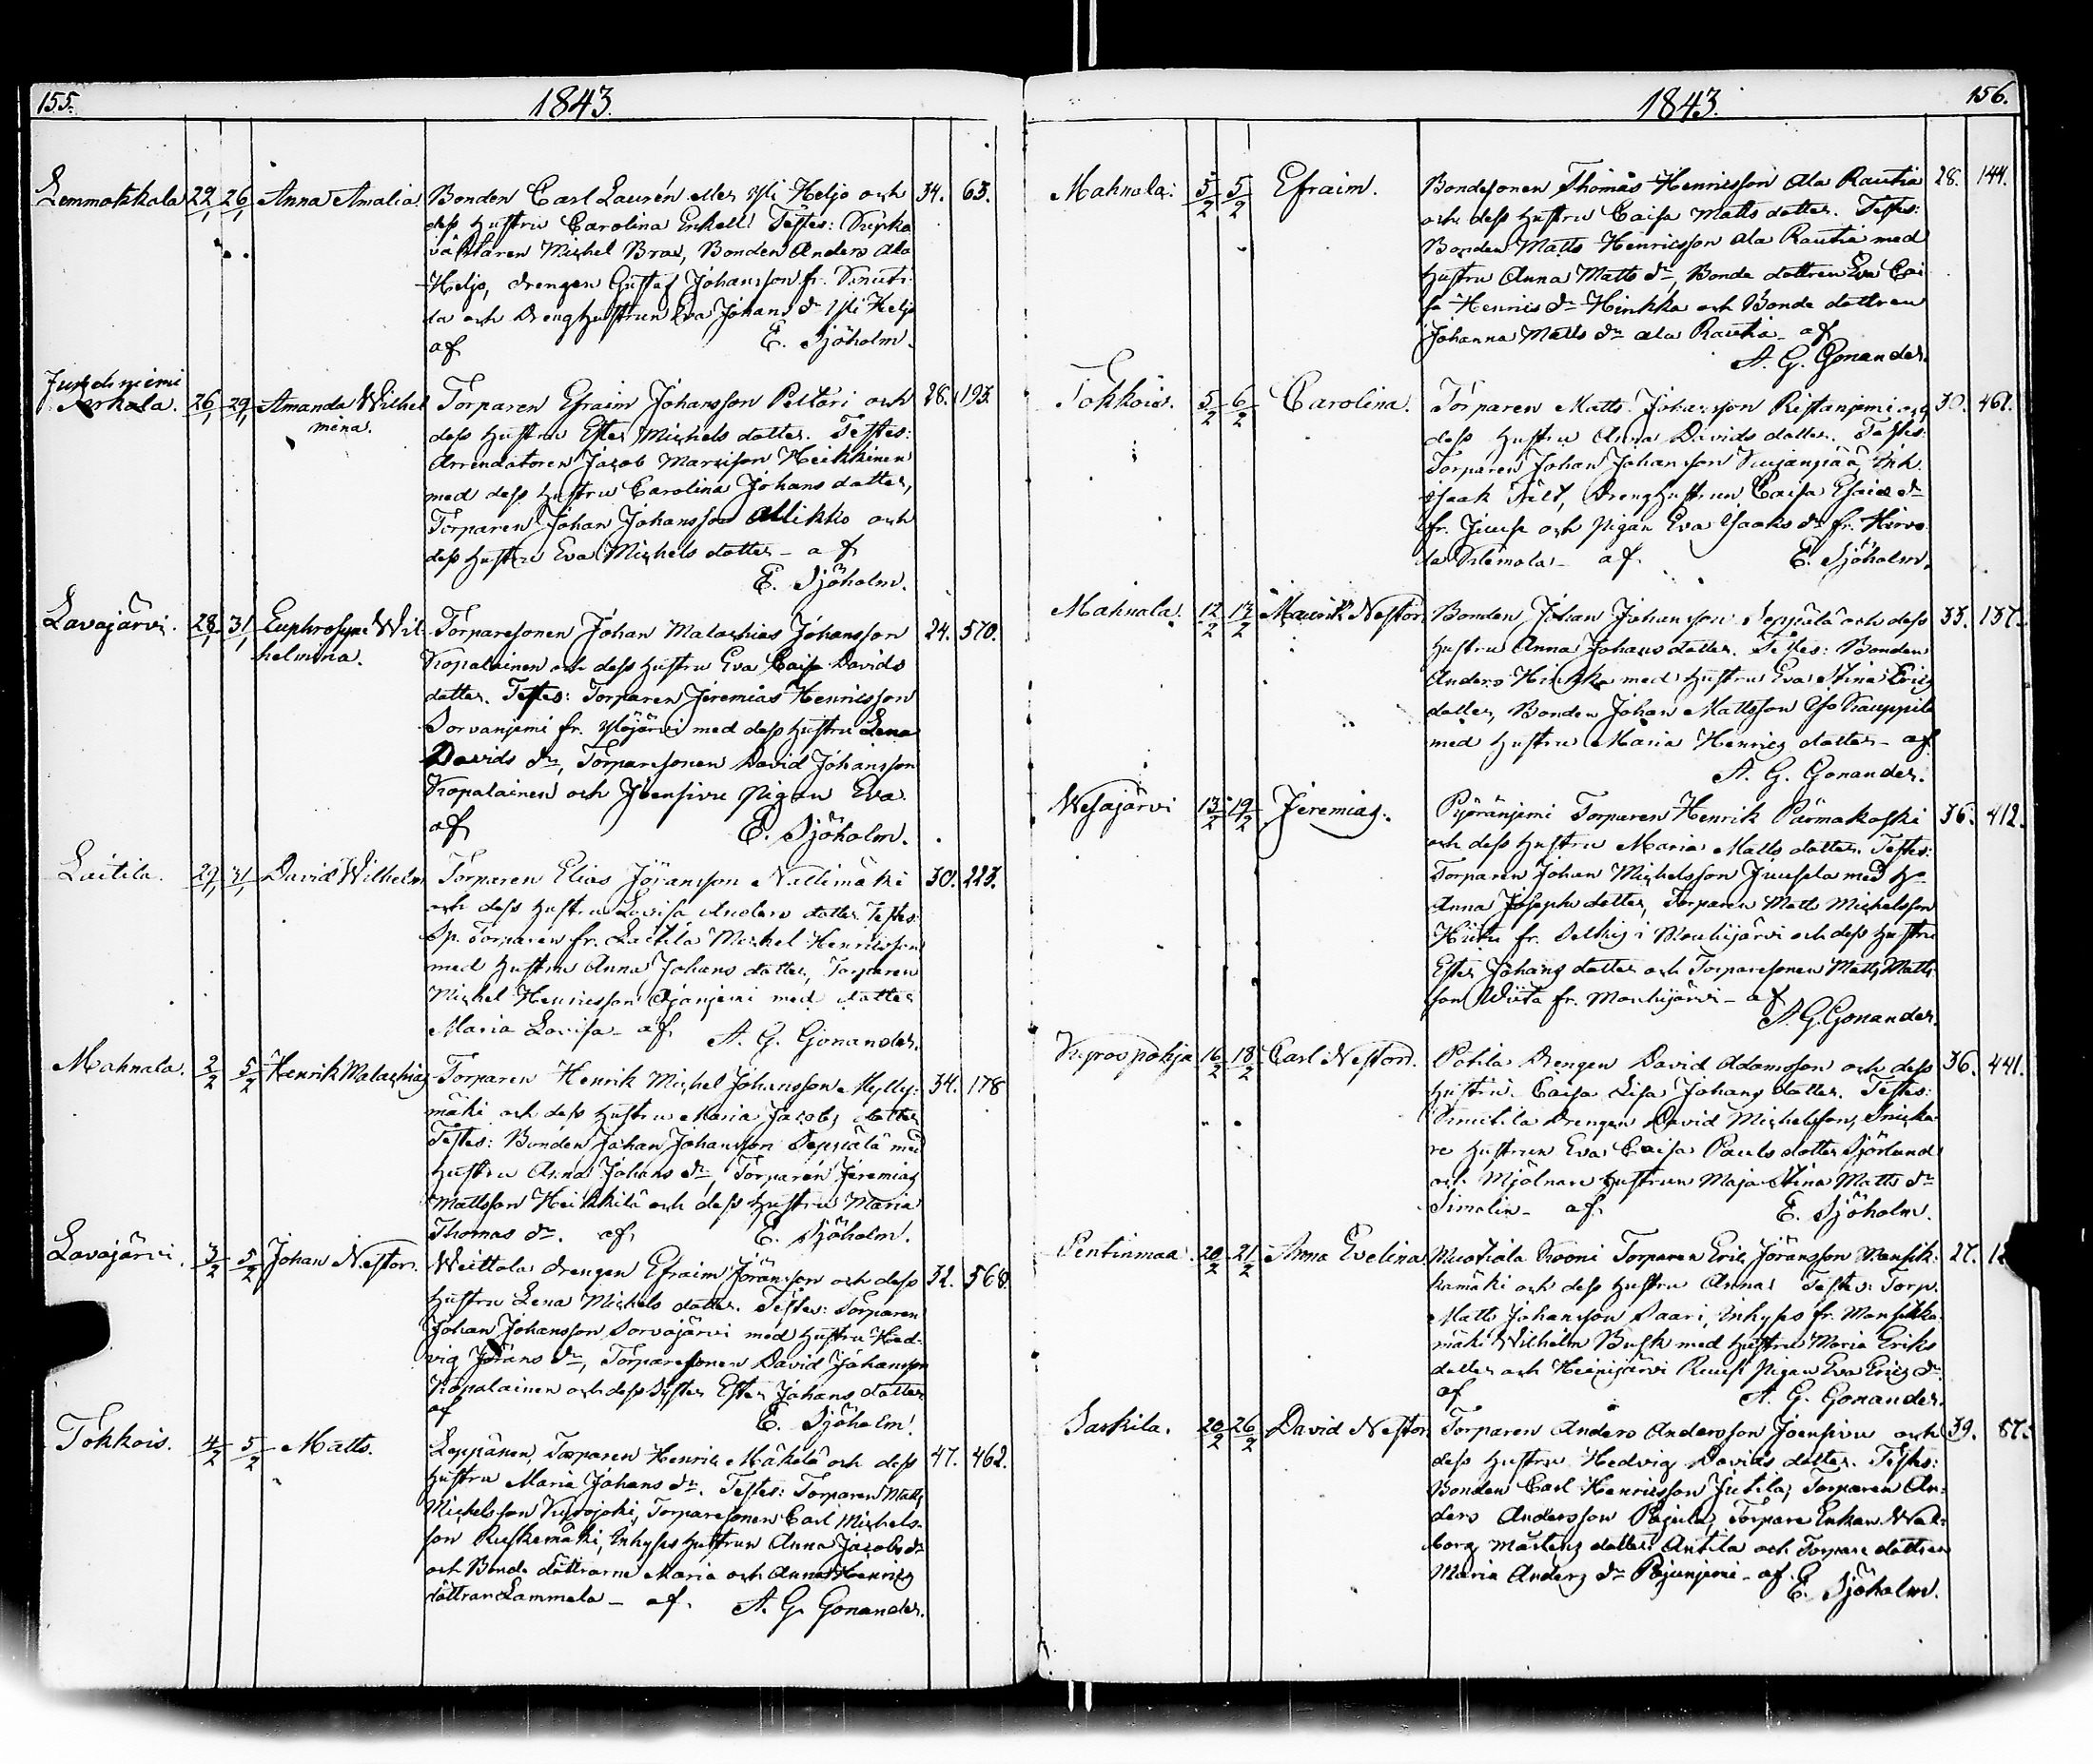 155.
1843.
Lemmakkala 22/1 26/1 Anna Amalia Bonden Carl Laurén eller Yli Heljo och 34. 63.
dess hustru Carolina Enkell. Testes:
Michel Brax, Bonden Anders Ala
Heljo, drengen Gustaf Johansson fr.
da och Dreng hustrun Eva Johans dr Yli Heljo
af E. Sjöholm.
26/1 29/1 Amanda Wilhel Torparen Efraim Johansson Peltari och 28. 193.
mina. dess hustru Ester Michels dotter. Testes:
Arrendatoren Jacob Heikkinen
med dess hustru Carolina Johans dotter,
Torparen Johan Johansson Allikko och
dess hustru Eva Michels dotter - af
E. Sjöholm.
Lavajärvi. 28/1 31/1 Euphrosyne Wil- Torparesonen Johan Malachias Johansson 24. 570.
helmina. Kopalainen och dess hustru Eva Caisa Davids
dotter. Testes: Torparen Jeremias Henricsson
Sorvanjemi fr. Ylöjärvi med dess hustru Lena
Davids dr, Torparesonen David Johansson
Kopalainen och Joensivu pigan Eva
af E. Sjöholm.
Laitila. 29/1 31/1 David Wilhelm Torparen Elias Jöransson Nallimäki 30. 223.
och dess hustru Lovisa Anders dotter Testes:
Sp. Torparen fr. Laitila Michel Henricsson
med hustru Anna Johans dotter, Torparen
Michel Henricsson Ojanjemi med dotter
Maria Lovisa - af A. G. Gonander.
Mahnala. 2/2 5/2 Henrik Malachias Torparen Henrik Michel Johansson Mylly- 34. 178
mäki och dess hustru Maria Jacobs dotter
Testes: Bonden Johan Johansson Seppälä med
hustru Anna Johans dr, Torparen Jeremias
Mattsson Heikkilä och dess hustru Maria
Thomas dr. af E. Sjöholm.
Lavajärvi. 3/2 5/2 Johan Nestor. Weittola drengen Efraim Jöransson och dess 32. 568.
hustru Lena Michels dotter. Testes: Torparen
Johan Johansson Sorvajärvi med hustru Hed-
vig Jörans dr, Torparesonen David Johansson
Kopalainen och dess syster Ester Johans dotter
af E. Sjöholm.
Tokkois. 4/2 5/2 Matts. Leppänen, Torparen Henric Mäkelä och dess 47. 462.
hustru Maria Johans dr. Testes: Torparen Matts
Michelsson Kurojoki, Torparesonen Carl Michels-
son Ruskemäki, Inhyses hustrun Anna Jacobs dr
och Bonde döttrarne Maria och Anna Henrics
döttrar Lammela - af. A. G. Gonander.
156.
1843.
Mahnala. 5/2 5/2 Efraim. Bondesonen Thomas Henricsson Ala Rautia 28. 144.
och dess hustru Caisa Matts dotter. Testes:
Bonden Matts Henricsson Ala Rautia med
hustru Anna Matts dr, Bonde dottren Eva Cai
sa Henrics dr Hinkka och Bonde dottren
Johanna Matts dr ala Rautia - af
A. G. Gonander.
Tokkois. 5/2 6/2 Carolina. Torparen Matts Johansson Ristanjemi och 30. 461.
dess hustru Anna Davids dotter. Testes:
Torparen Johan Johansson Kujanpää, Inh.
Isaak Fält, Dreng hustrun Caisa Esaias dr
fr. Juusi och pigan Eva Isaaks dr fr.
af. E. Sjöholm.
Mahnala. 12/2 13/2 Maurik Nestor. Bonden Johan Johansson Seppälä och dess 33. 137.
hustru Anna Johans dotter. Testes: Bonden
Anders Hinkka med hustru Eva Stina Erics
dotter, Bonden Johan Mattsson Iso Kauppila
med hustru Maria Henrics dotter - af
A. G. Gonander.
Wesajärvi 13/2 19/2 Jeremias. Pyöränjemi Torparen Henrik Pärmakoski 36. 412.
och dess hustru Maria Matts dotter. Testes:
Torparen Johan Michelsson Juusela med H
Anna Josephs dotter, Torparen Matts Michelsson
fr. Selkis i Mouhijärvi och dess hustru
Ester Johans dotter och Torparesonen Matts Matts
son Wiita fr. Mouhijärvi - af
A. G. Gonander.
Kyröspohja 16/2 18/2 Carl Nestor. Potila Drengen David Adamsson och dess 36. 441.
hustru Caisa Lisa Johans dotter. Testes:
Knuutila Drengen David Michelsson, Snicka-
re hustrun Eva Caisa Pauls dotter Sjörlund
och Mjölnare hustrun Maja Stina Matts dr
Simelin - af E. Sjöholm.
Pentinmaa. 20/2 21/2 Anna Evelina. Muotiala Torparen Eric Jöransson Mansik- 27. 12
kamäki och dess hustru Anna. Testes: Torp.
Matts Johansson Saari, Inhyses fr. Mansikka
mäki Wilhelm Busk med hustru Maria Eriks
dotter och Heinijärvi Ruusi pigan Eva Erics dr
af A. G. Gonander.
Sarkila. 20/2 26/2 David Nestor Torparen Anders Andersson Joensivu och 39. 87.
dess hustru Hedvig Davids dotter. Testes:
Bonden Carl Henricsson Jutila, Torparen An-
ders Andersson Pajula, Torpare Enkan Wal-
borg Mårtens dotter Antila och Torpare dottren
Maria Anders dr Pajunjemi - af.
E. Sjöholm.